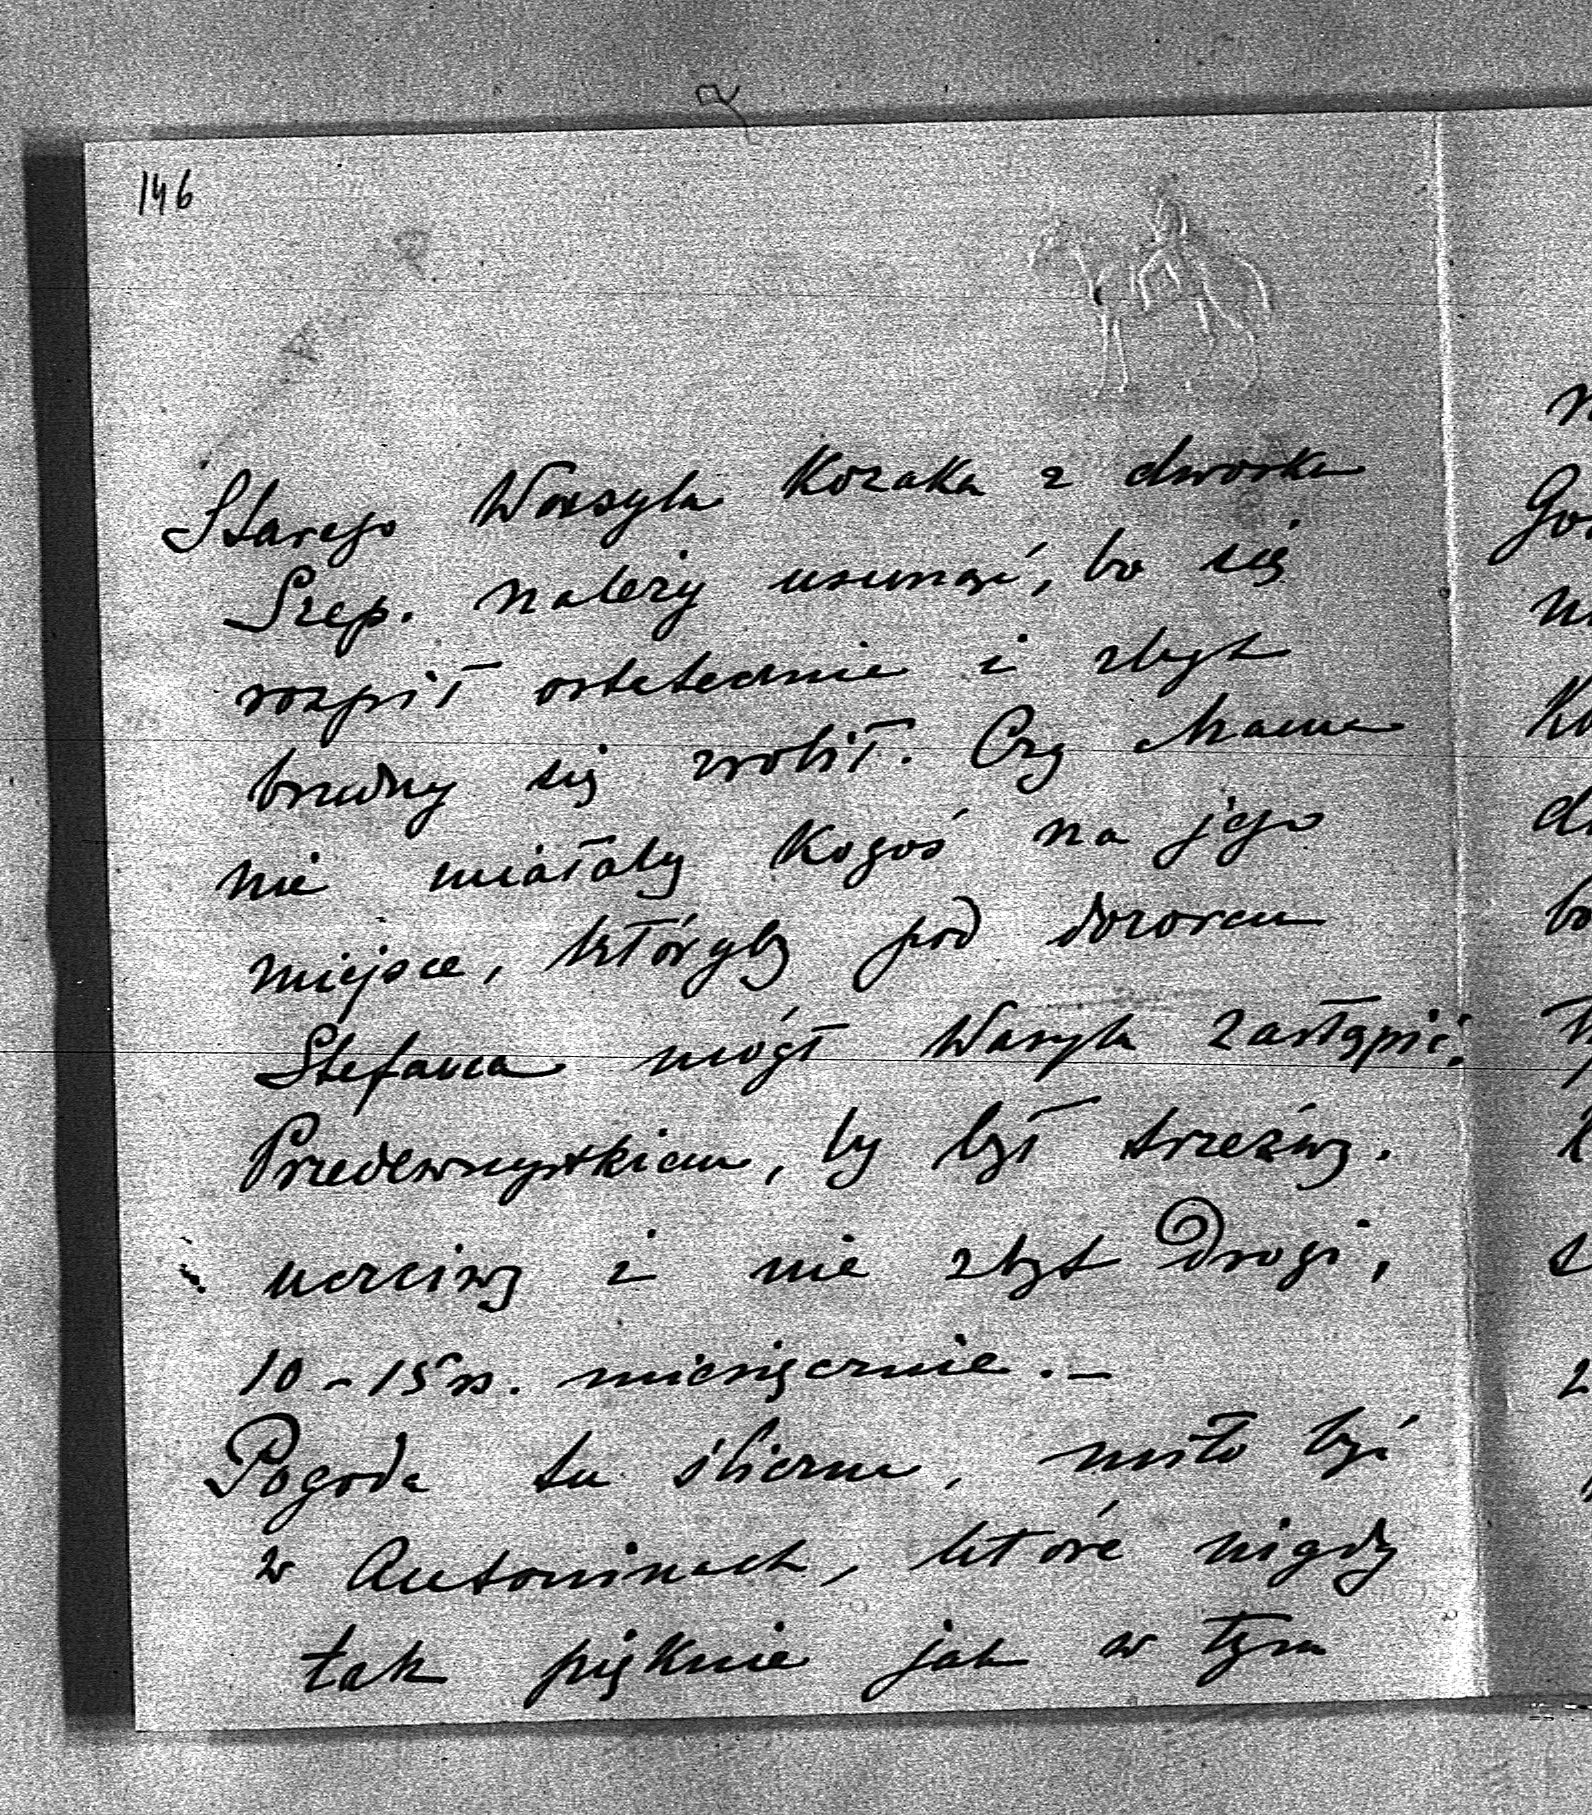 146
Starego Wasyla Kozaka z dworku
Szep. należy usunąć, bo się
rozpił ostatecznie i zbyt
brudny się zrobił. Czy Mama
nie miałaby Kogoś na jego
miejsce, któryby pod dozorem
Stefana mógł Wasyla zastąpić.
Przedewszystkiem, by był trzeźwy.
uczciwy i nie zbyt drogi,
10 - 15 rs. miesięcznie. –
Pogoda tu śliczna, miło być
w Antoninach, które nigdy
tak pięknie jak w tym